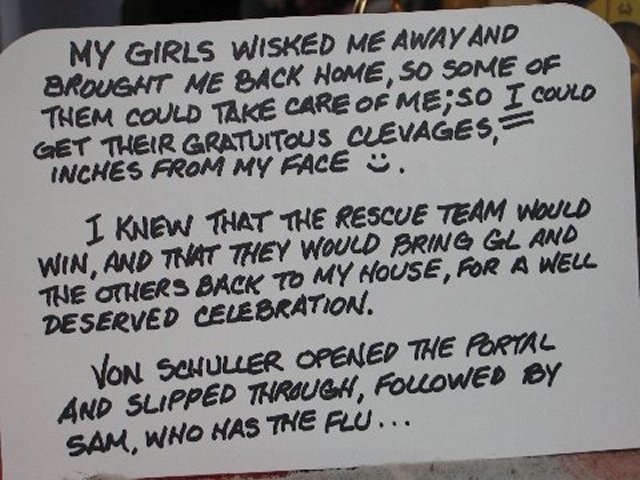 MY GIRLS WISKED ME AWAY AND
BROUGHT ME BACK HOME, SO SOME OF
THEM COULD TAKE CARE OF ME; SO I COULD
GET THEIR GRATUITOUS CLEVAGES,
INCHES FROM MY FACE :).
I KNEW THAT THE RESCUE TEAM WOULD
WIN, AND THAT THEY WOULD BRING GL AND
THE OTHERS BACK TO MY HOUSE, FOR A WELL
DESERVED CELEBRATION.
VON SCHULLER OPENED THE PORTAL
AND SLIPPED THROUGH, FOLLOWED BY
SAM, WHO HAS THE FLU...